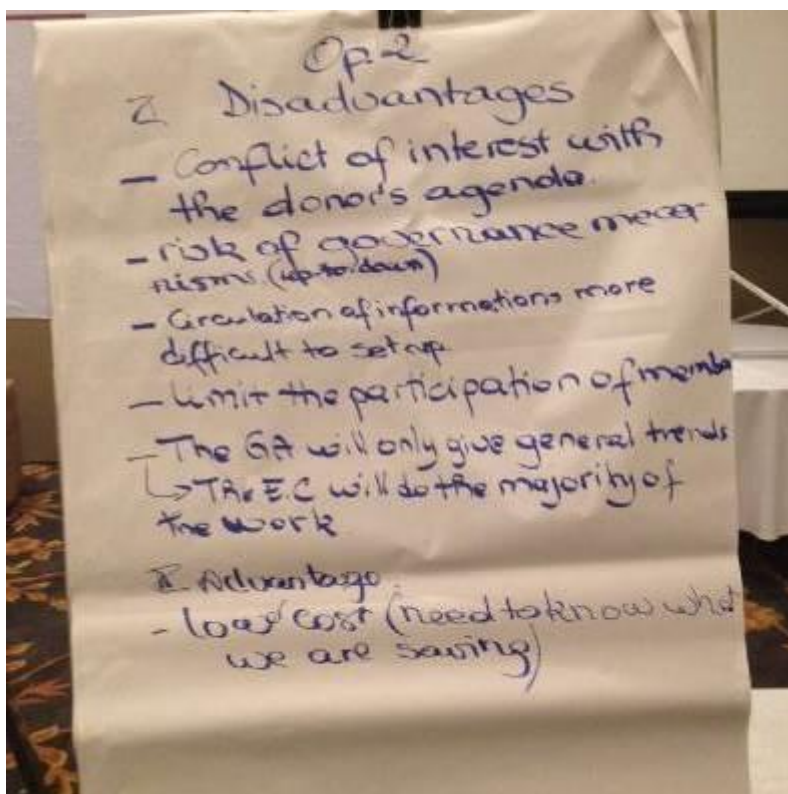 Op 2
I Disadvantages
- Conflict of interest with
the donor's agenda.
- risk of governance meca-
nisms (up to down)
- Circulation of informations more
difficult to set up
- Limit the participation of membe
- The GA will only give general trends
↳ The E.C will do the majority of
the work
II Advantage
- low cost (need to know what
we are saving)